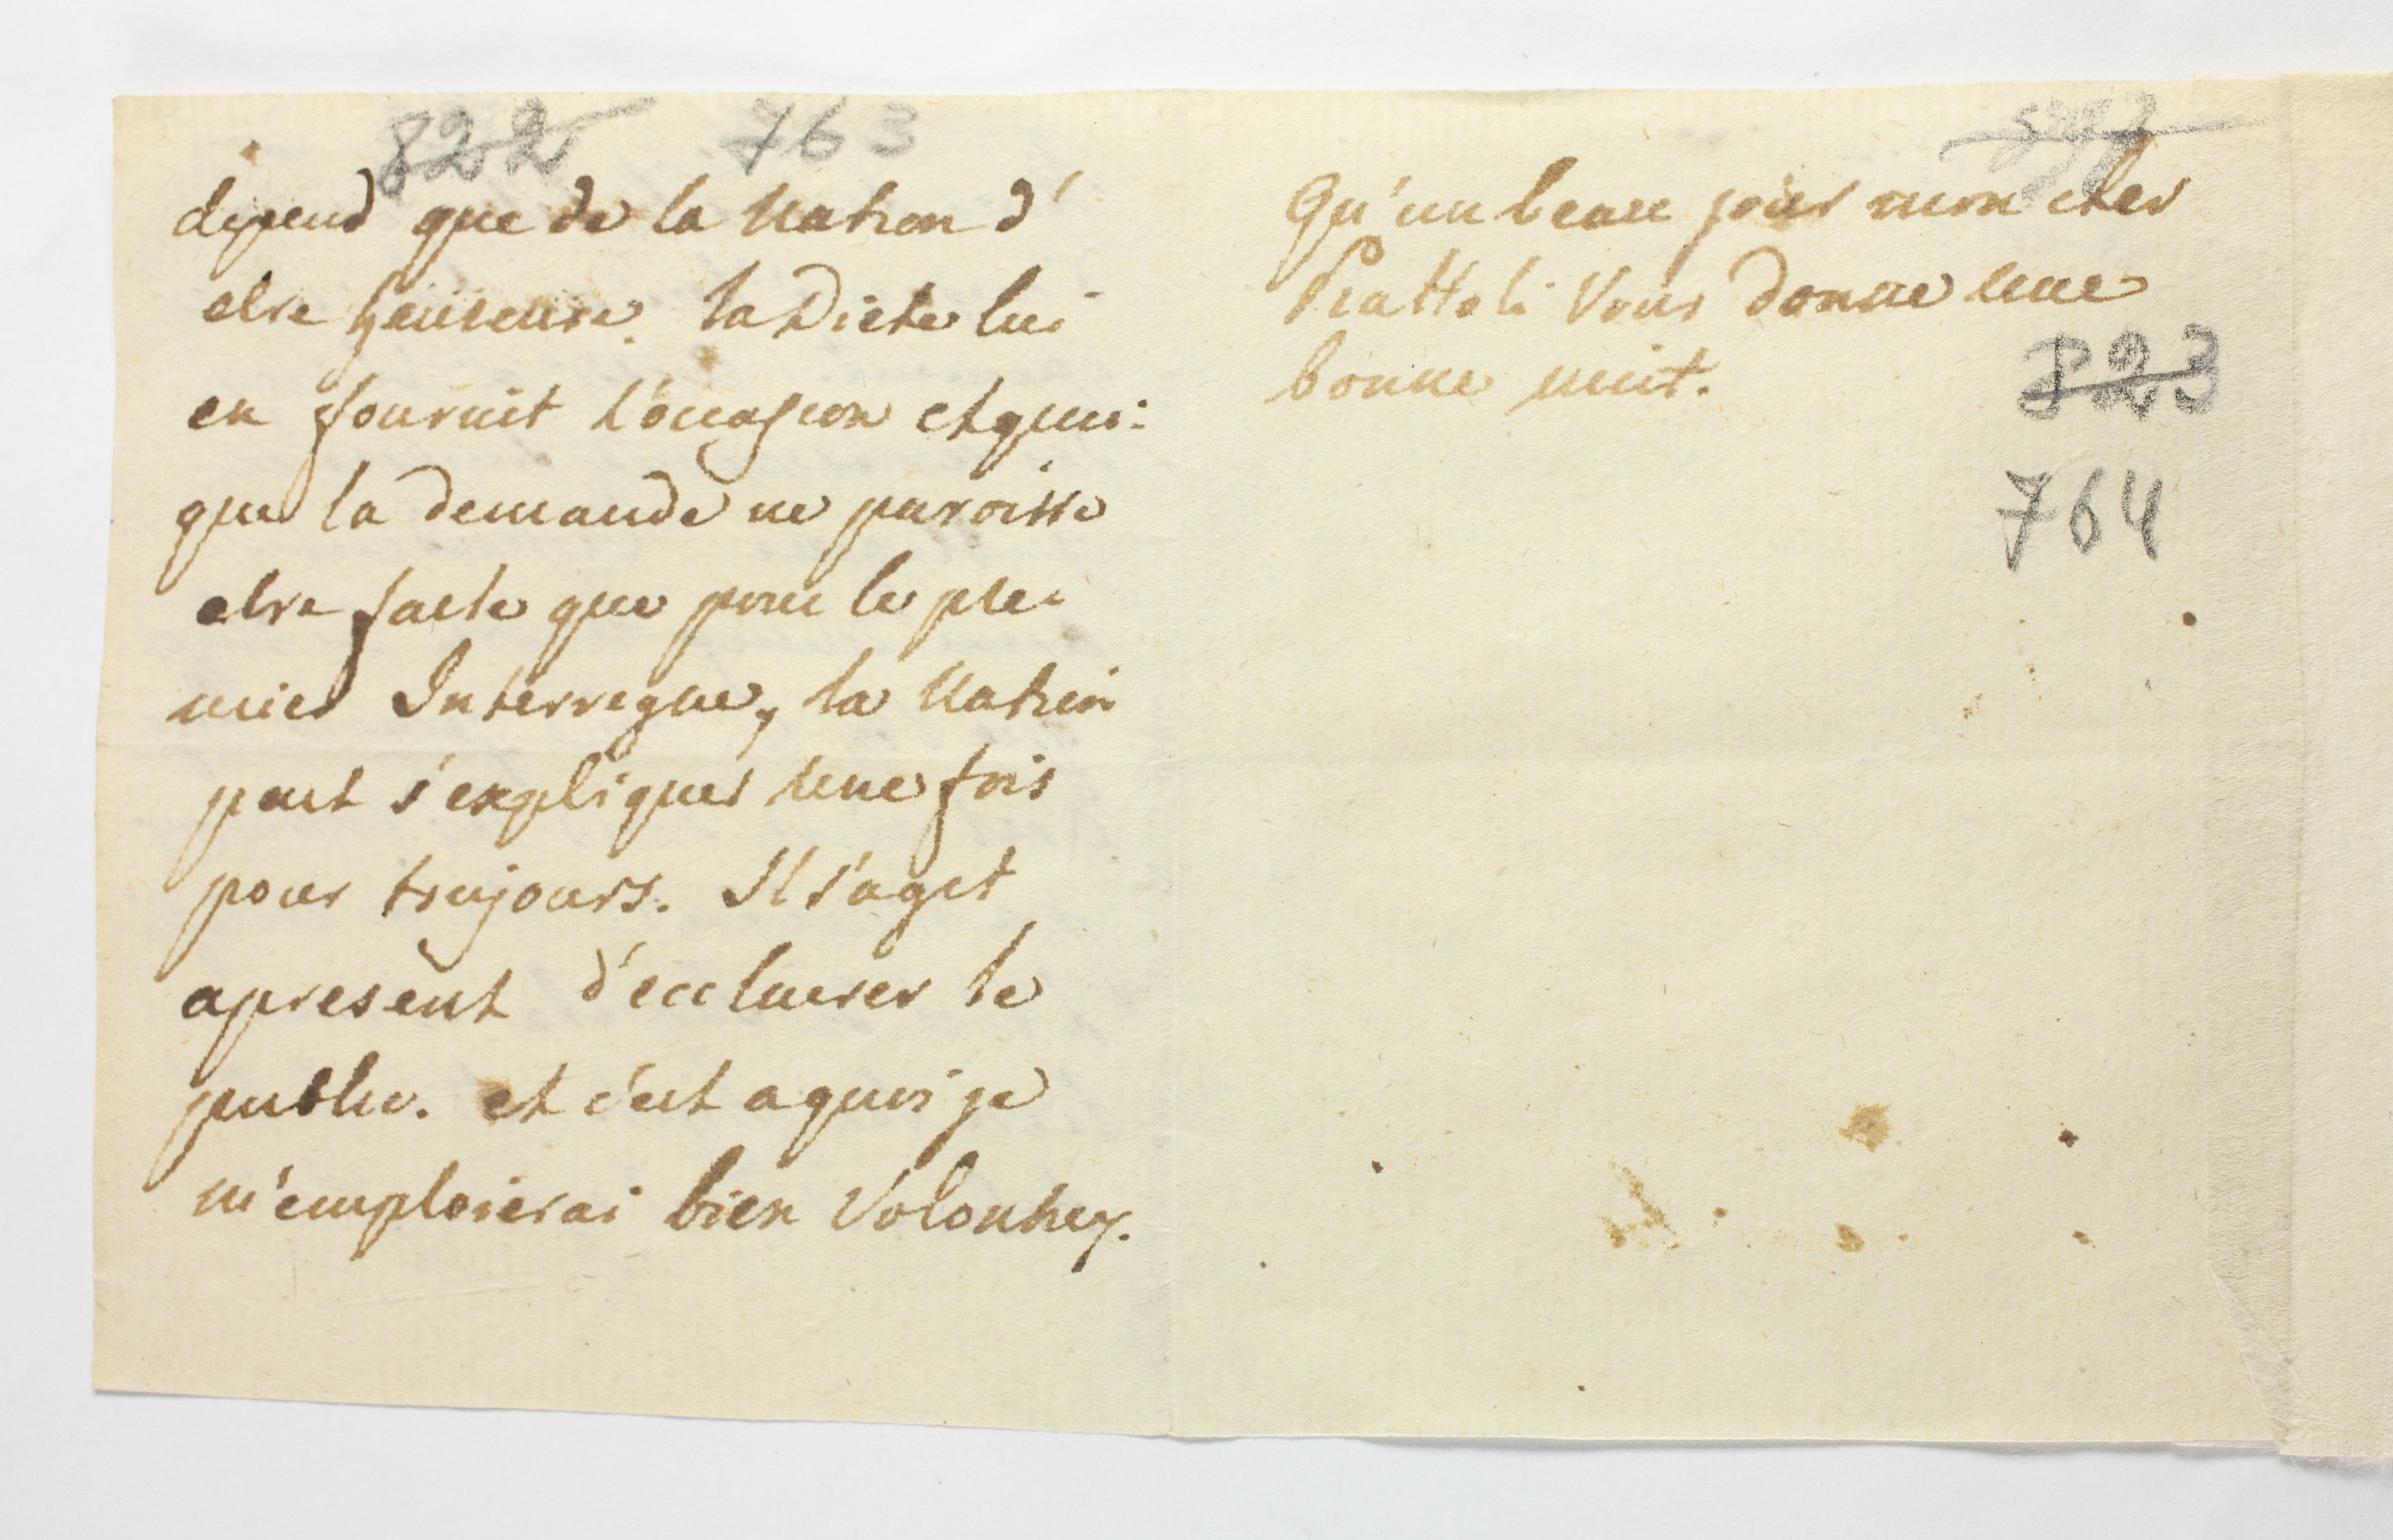 822 763
depend que de la Nation d'
etre heureuse. la Diete lui
en fournit l'occasion et quoi:
que la demande ne paroisse
etre faite que pour le pre:
mier Interregne, la Nation
peut s'expliquer une fois
pour toujours. Il s'agit
apresent d'ecclairer le
public. et c'est a quoi je
m'emploierai bien Volontiers.
Qu'un beau jour mon cher
Piattoli Vous donne une
bonne nuit.
823
764